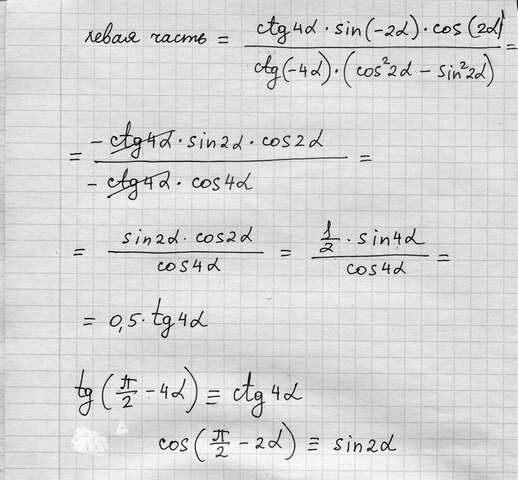 левая часть = (ctg4α · sin(-2α) · cos(2α)) / (ctg(-4α) · (cos²2α - sin²2α)) =
= (-ctg4α · sin2α · cos2α) / (-ctg4α · cos4α) =
= (sin2α · cos2α) / (cos4α) = (1/2 · sin4α) / (cos4α) =
= 0,5 · tg4α
tg(π/2 - 4α) ≡ ctg4α
cos(π/2 - 2α) ≡ sin2α